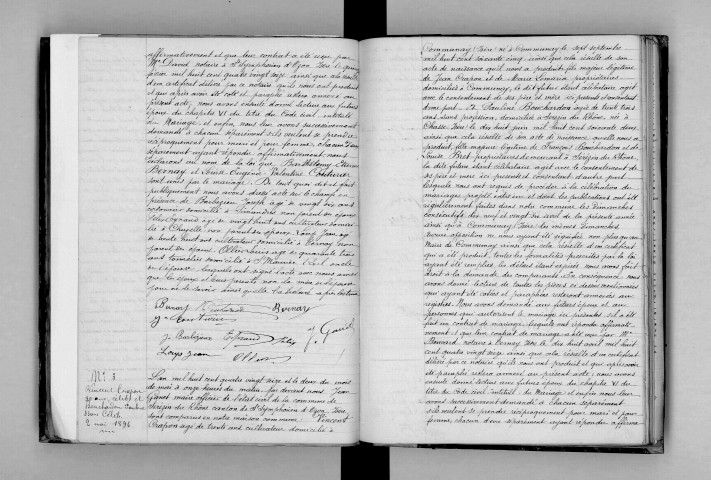 affirmativement et que leur contrat a été reçu par
Me David notaire à St Symphorien d'Ozon Isère le quinze
février mil huit cent quatre vingt seize ainsi que cela résulte
d'un certificat délivré par ce notaire qu'ils nous ont produit
et qui après avoir été coté et paraphé restera annexé au
présent acte, nous avons ensuite donné lecture aux futurs
époux du chapitre VI du titre du Code civil intitulé
du Mariage; et enfin nous leur avons successivement
demandé à chacun séparément s'ils veulent se prendre
réciproquement pour mari et pour femme, chacun d'eux
séparément ayant répondu affirmativement, nous
déclarons au nom de la loi que Barthélemy Etienne
Bernay et Louise Eugénie Valentine Couturier
sont unis par le mariage. De tout quoi dit et fait
publiquement nous avons dressé acte sur le champ en
présence de Joseph âgé de vingt six ans
cultivateur domicilié à Simandres non parent des époux
âgé de vingt huit ans cultivateur domici-
lié à non parent des époux Jean âgé
de trente huit ans cultivateur domicilié à non
parent des époux âgé de quarante trois
ans domicilié à
de l'épouse, lesquels ont signé l'acte avec nous ainsi
que les époux et leurs parents non la mère de l'époux
pour ne le savoir ainsi qu'elle l'a déclaré après lecture
Bernay Bernay
Couturier
J. Garel
Jean
No 3
Vincent Crapon
30 ans, célib. et
Bouchardon Pauline
ans Célib
2 mai 1896
L'an mil huit cent quatre vingt seize et le deux du mois
de mai à onze heures du matin, par devant nous Jean
Garel maire officier de l'état civil de la commune de
Sérézin du Rhône canton de St Symphorien d'Ozon, Isère
sont comparus en notre maison commune Vincent
Crapon âgé de trente ans cultivateur domicilié à
Communay Isère né à Communay le sept septembre
mil huit cent soixante cinq ainsi que cela résulte de son
acte de naissance qu'il nous a produit, fils majeur légitime
de Jean Crapon et de Marie propriétaires
domiciliés à Communay, le dit futur étant célibataire agit
avec le consentement de ses père et mère ici présents et consentant
d'une part. Et Pauline Bouchardon âgée de trente trois
ans sans profession, domiciliée à Sérézin du Rhône, née à
Chasse Isère le dix huit juin mil huit cent soixante deux
ainsi que cela résulte de son acte de naissance qu'elle nous a
produit, fille majeure légitime de François Bouchardon et de
Louise Bret propriétaires demeurant à Sérézin du Rhône,
la dite future étant célibataire agit avec le consentement de
ses père et mère ici présents et consentant d'autre part.
Lesquels nous ont requis de procéder à la célébration du
mariage projeté entre eux et dont les publications ont été
régulièrement faites dans notre commune les dimanches
consécutifs dix neuf et vingt six avril de la présente année
ainsi qu'à Communay Isère les mêmes dimanches
aucune opposition ne nous ayant été signifiée non plus qu'au
Maire de Communay ainsi que cela résulte d'un certificat
qui a été produit, toutes les formalités prescrites par la loi
ayant été remplies, les délais étant expirés nous avons fait
droit à la demande des comparants. En conséquence nous
avons donné lecture de toutes les pièces ci dessus mentionnées
qui ayant été cotées et paraphées resteront annexées aux
registres. Nous avons demandé aux futurs époux et aux
personnes qui autorisent le mariage ici présentes s'il a été
fait un contrat de mariage, lesquels ont répondu affirmati-
vement et que leur contrat de mariage a été reçu par Me
notaire à Ternay Isère le dix huit avril mil huit
cent quatre vingt seize ainsi que cela résulte d'un certificat
délivré par ce notaire qu'ils nous ont produit et qui après avoir
été paraphé restera annexé au présent acte; nous avons
ensuite donné lecture aux futurs époux du chapitre VI du
titre du Code civil intitulé du Mariage, et enfin nous leur
avons successivement demandé à chacun séparément
s'ils veulent se prendre réciproquement pour mari et pour
femme, chacun d'eux séparément ayant répondu affirma-